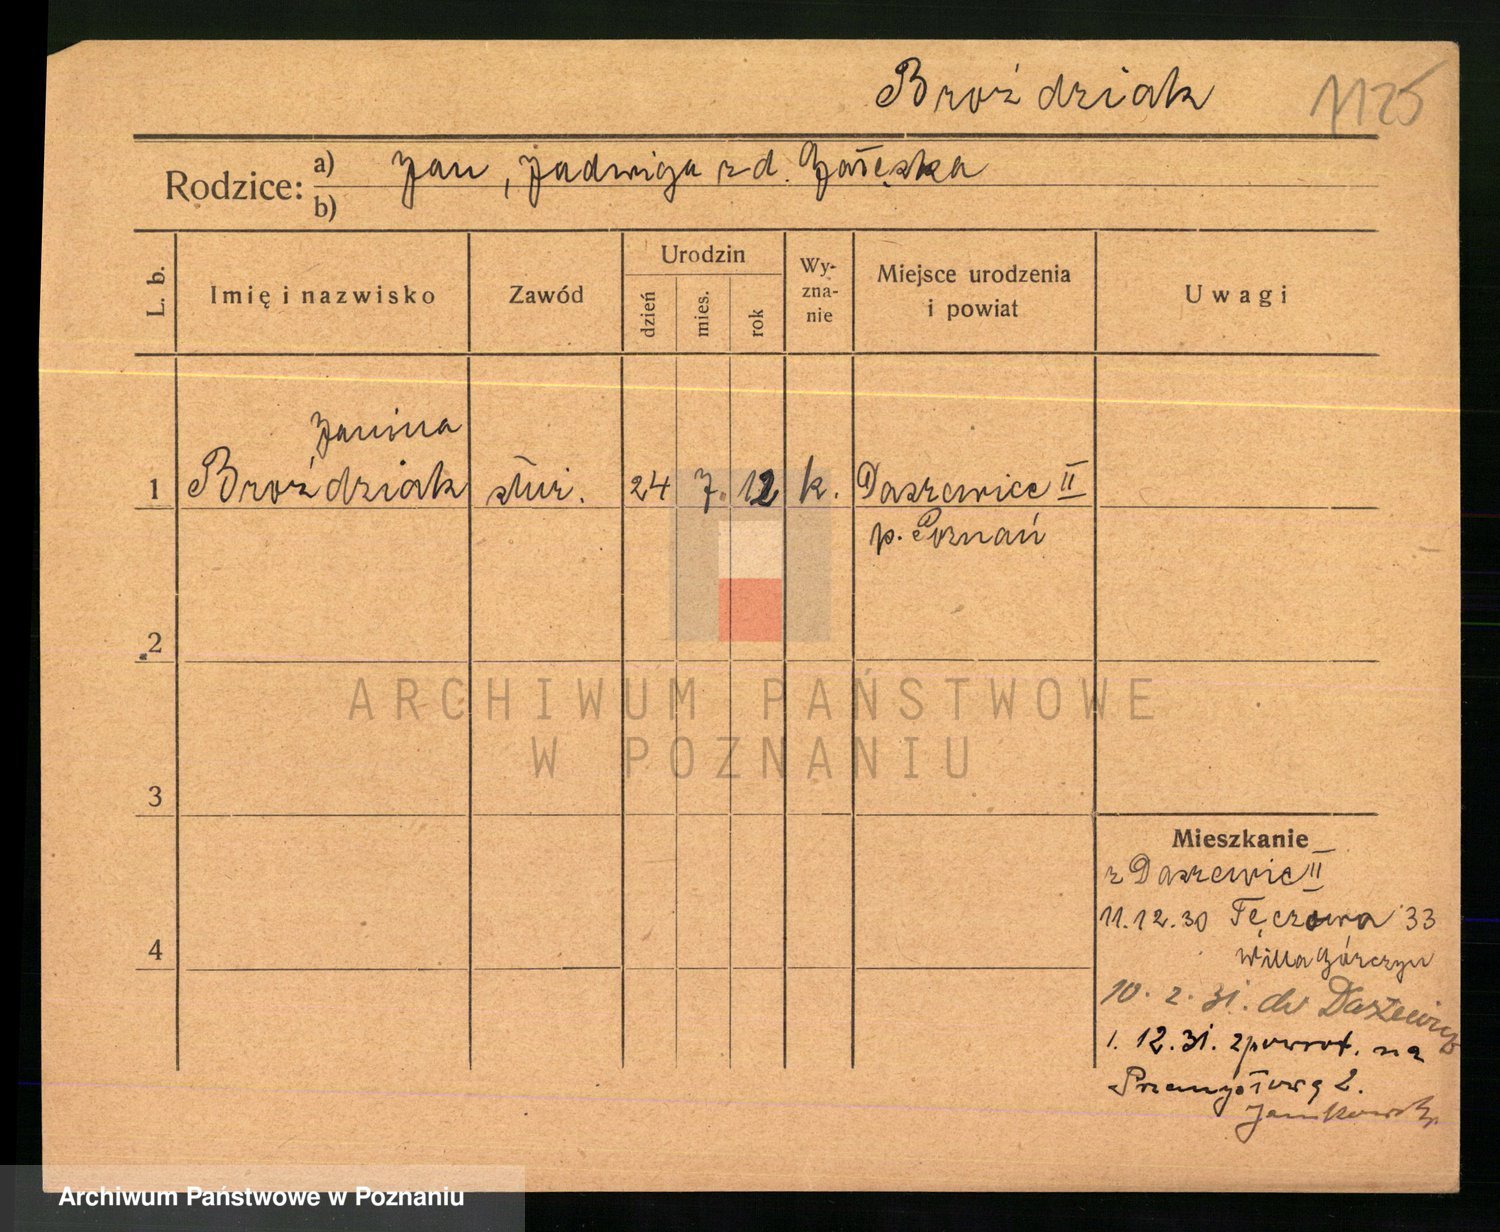 Broździak 1125
Rodzice: a) Jan, Jadwiga zd. Załęska
b)
L. b. Imię i nazwisko Zawód Urodzin dzień mies. rok Wy-zna-nie Miejsce urodzenia i powiat Uwagi
Janina
1 Broździak służ. 24 7. 12 k. Daszewice II
p. Poznań
2
ARCHIWUM PAŃSTWOWE
W POZNANIU
3
Mieszkanie
z Daszewic II
11.12.30 Tęczowa 33
4
Willa Górczyn
10. 2. 31. do Daszewic
1. 12. 31. zpowrot. na
Przemysłową 2.
Archiwum Państwowe w Poznaniu